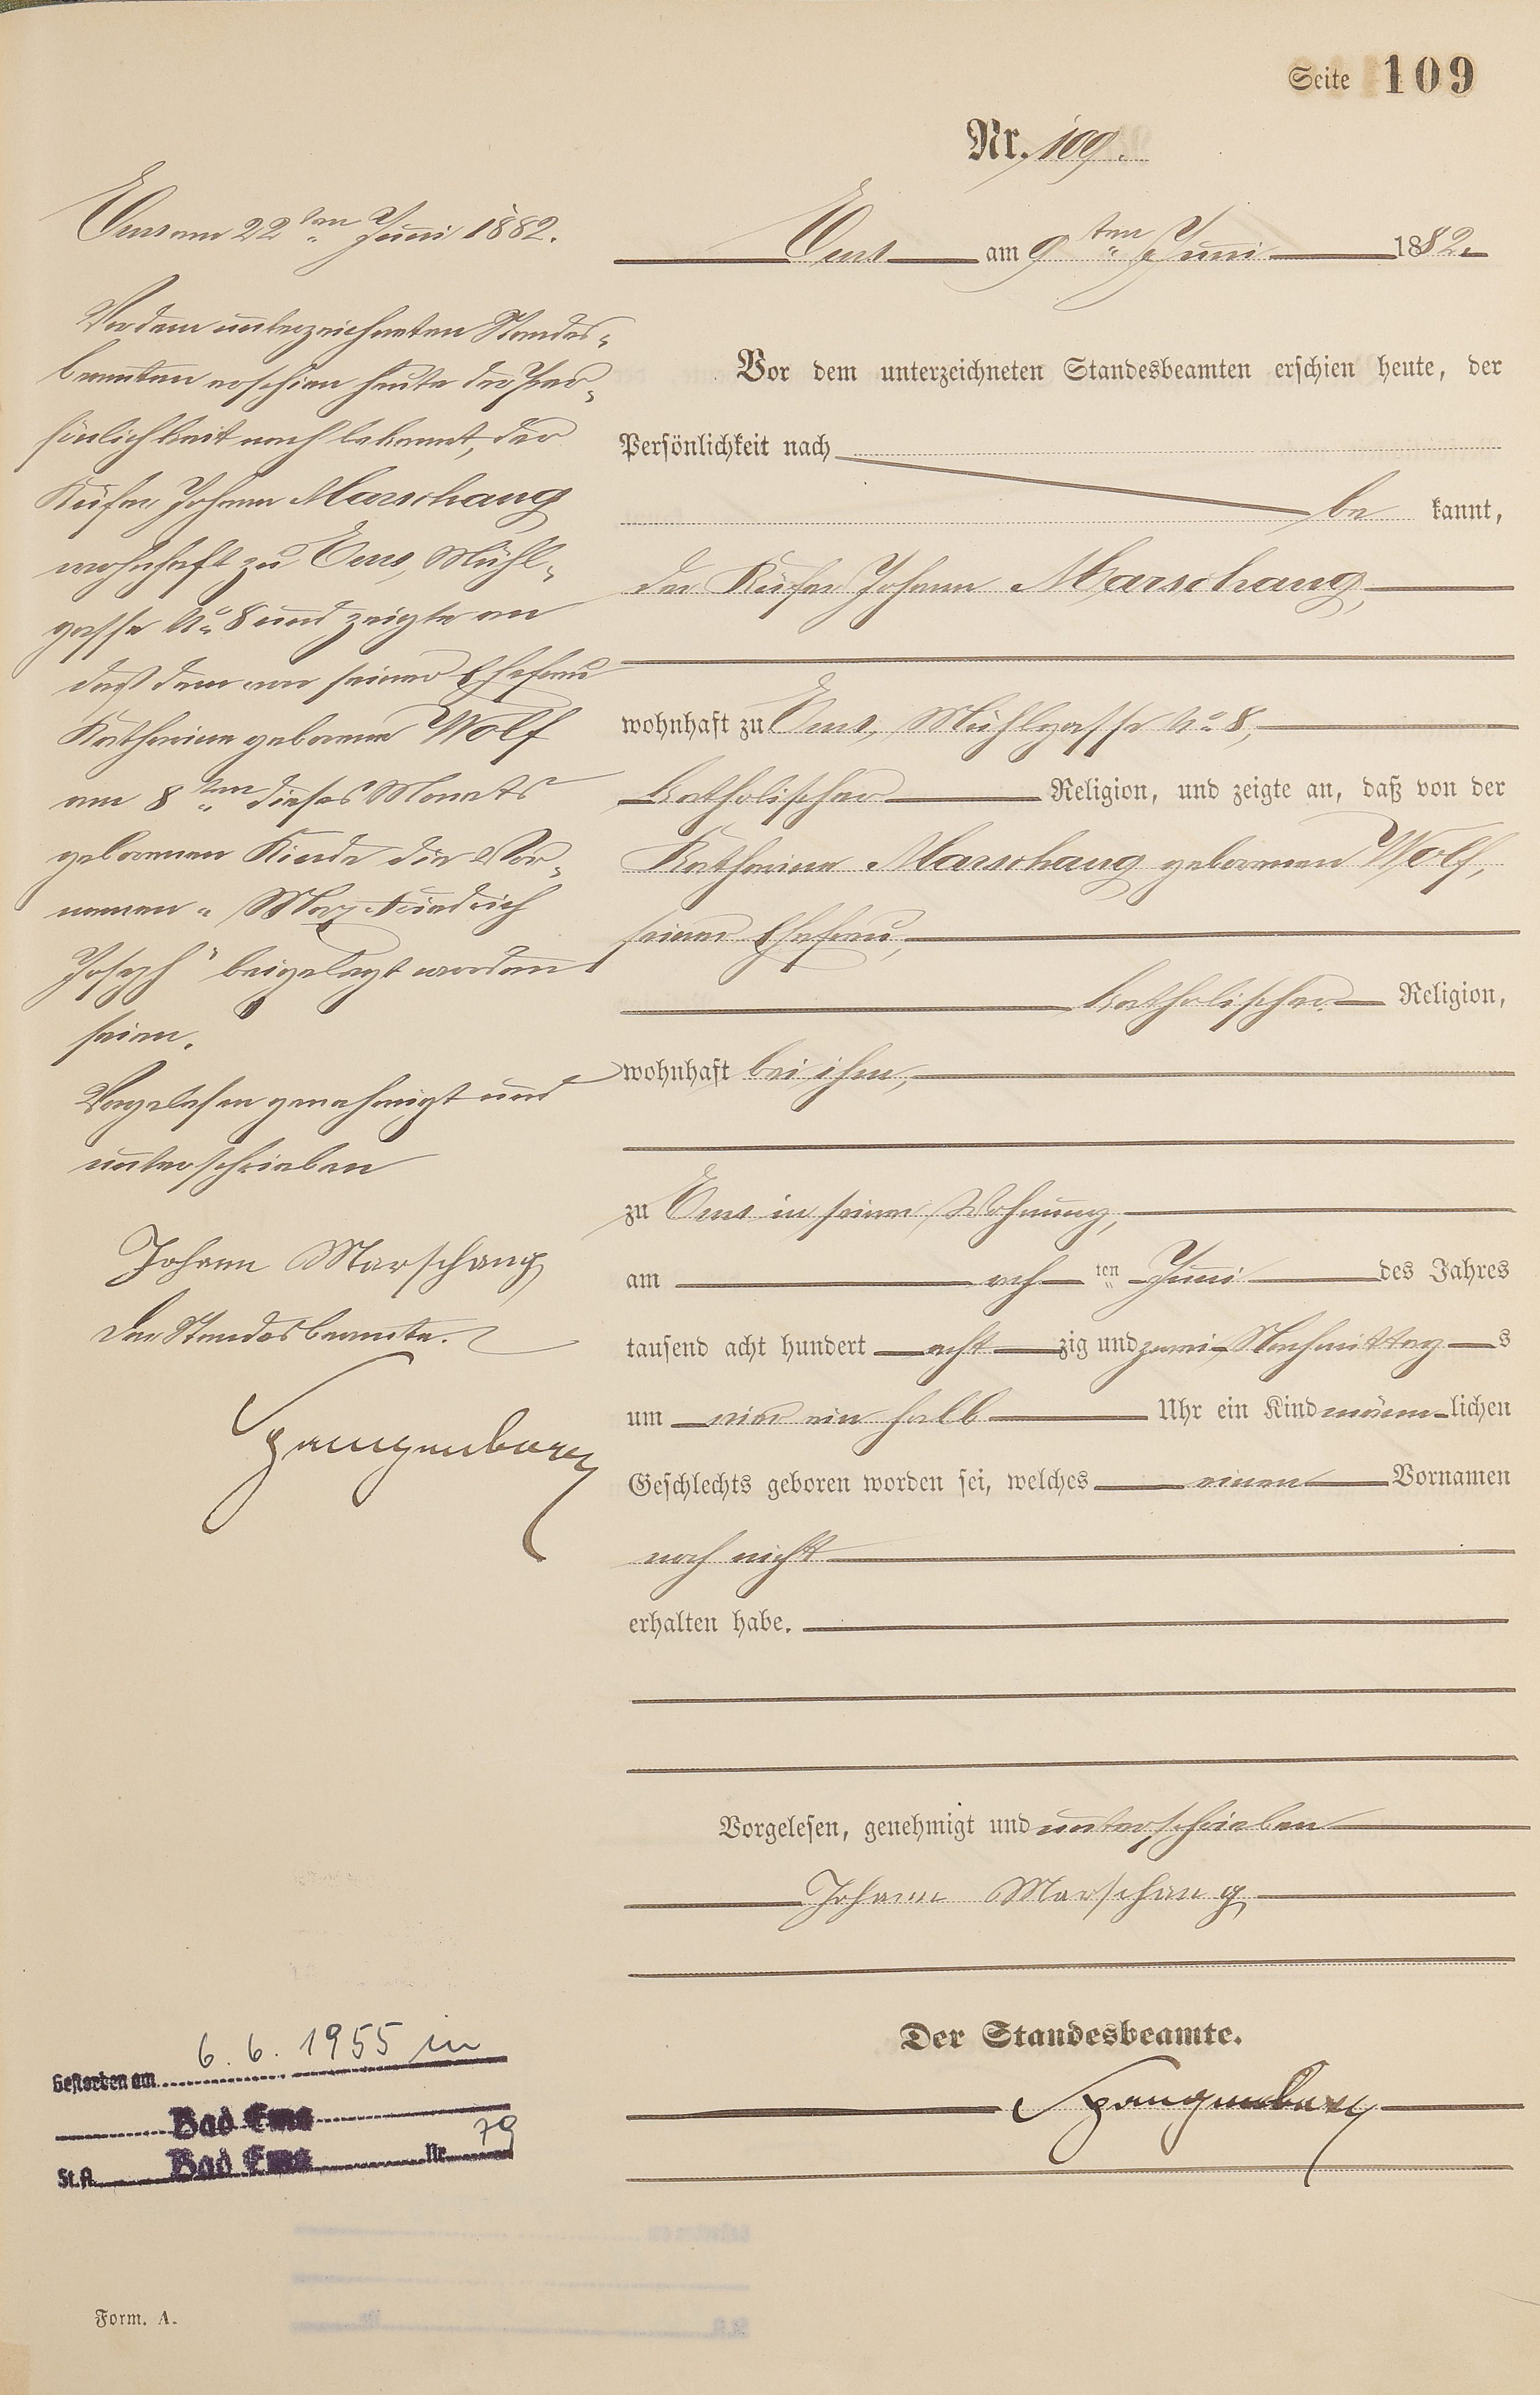 Seite 109
Nr. 109.
Ems am 9ten Juni 1882.
Vor dem unterzeichneten Standesbeamten erschien heute, der
Persönlichkeit nach
be kannt,
der Küfer Johann Marschang,
wohnhaft zu Ems, Mühlgasse No 8,
katholischer Religion, und zeigte an, daß von der
Katharina Marschang geborenen Wolf,
seiner Ehefrau,
katholischer Religion,
wohnhaft bei ihm,
zu Ems in seiner Wohnung,
am ach ten Juni des Jahres
tausend acht hundert acht zig und zwei Nachmittag s
um vier ein halb Uhr ein Kind männ lichen
Geschlechts geboren worden sei, welches einen Vornamen
noch nicht
erhalten habe.
Vorgelesen, genehmigt und unterschrieben
Johann Marschang
Der Standesbeamte.
Spangenberg
Ems am 22ten Juni 1882.
Vor dem unterzeichneten Standes-
beamten erschien heute der Per-
sönlichkeit nach bekannt, der
Küfer Johann Marschang
wohnhaft zu Ems, Mühl-
gasse No 8 und zeigte an
daß dem von seiner Ehefrau
Katharina geborene Wolf
am 8ten dieses Monats
geborenen Kinde die Vor-
namen " Friedrich
Joseph" beigelegt worden
seien.
Vorgelesen genehmigt und
unterschrieben
Johann Marschang
Der Standesbeamte.
Spangenberg
Gestorben am 6. 6. 1955 in
Bad Ems
St.A. Bad Ems Nr. 79
Form. A.